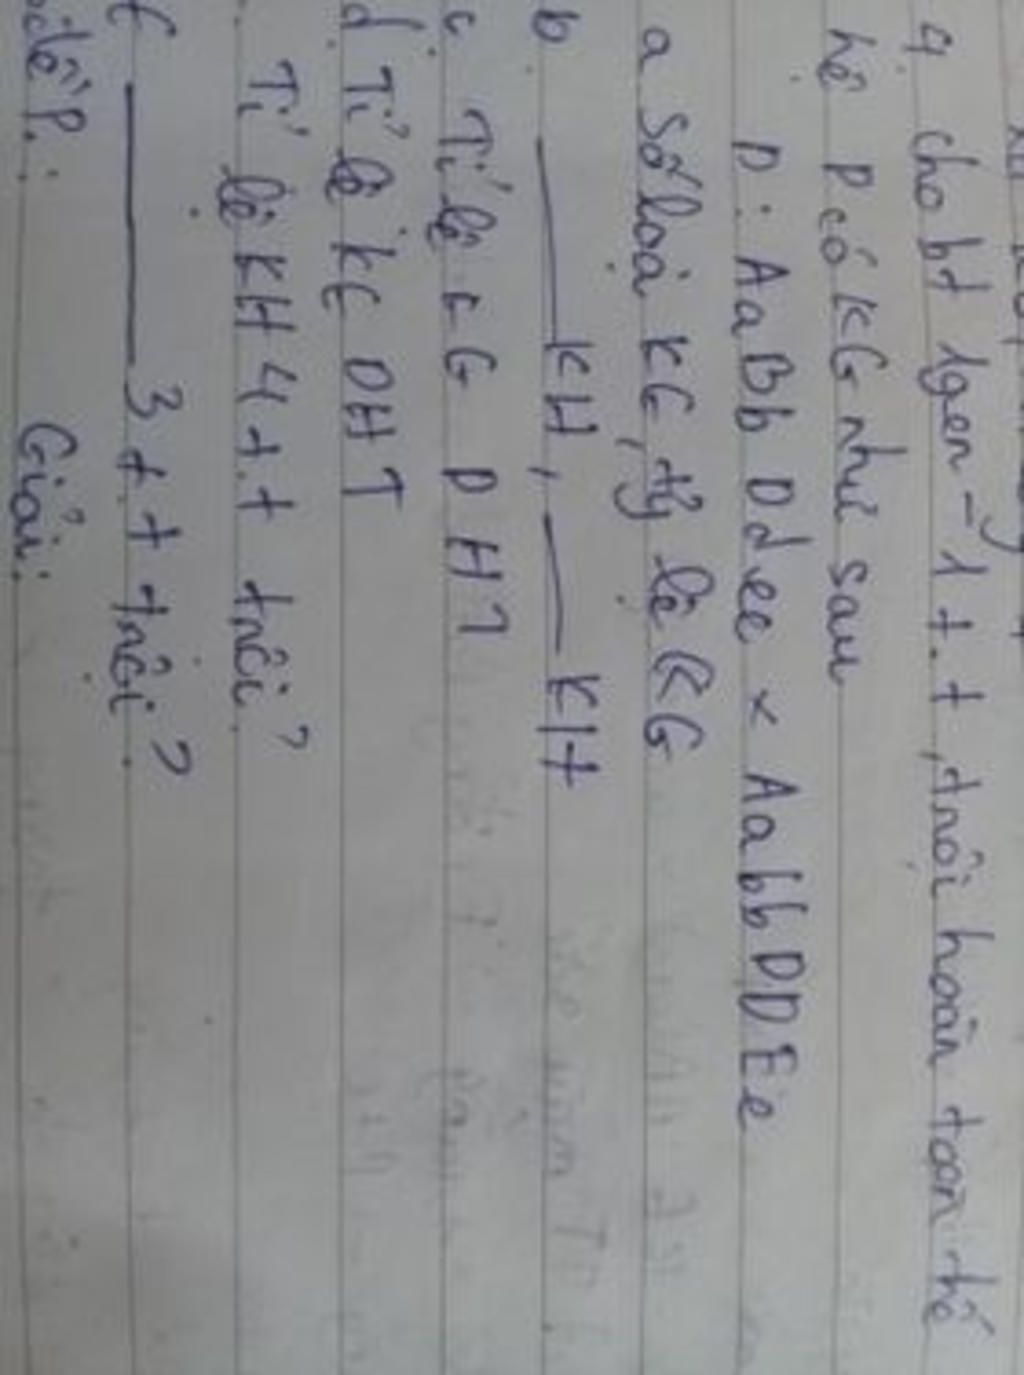 4 cho bt 1gen - 1 t.t, trội hoàn toàn thế
hệ P có KG như sau
P: AaBb Ddee x AabbDDEe
a Số loại KG, tỷ lệ KG
b ——— KH, —— KH
c Tỉ lệ KG DHT
d. Tỉ lệ KG DHT
Tỉ lệ KH 4 t.t trội?
——— 3 t.t trội?
P: Giải: